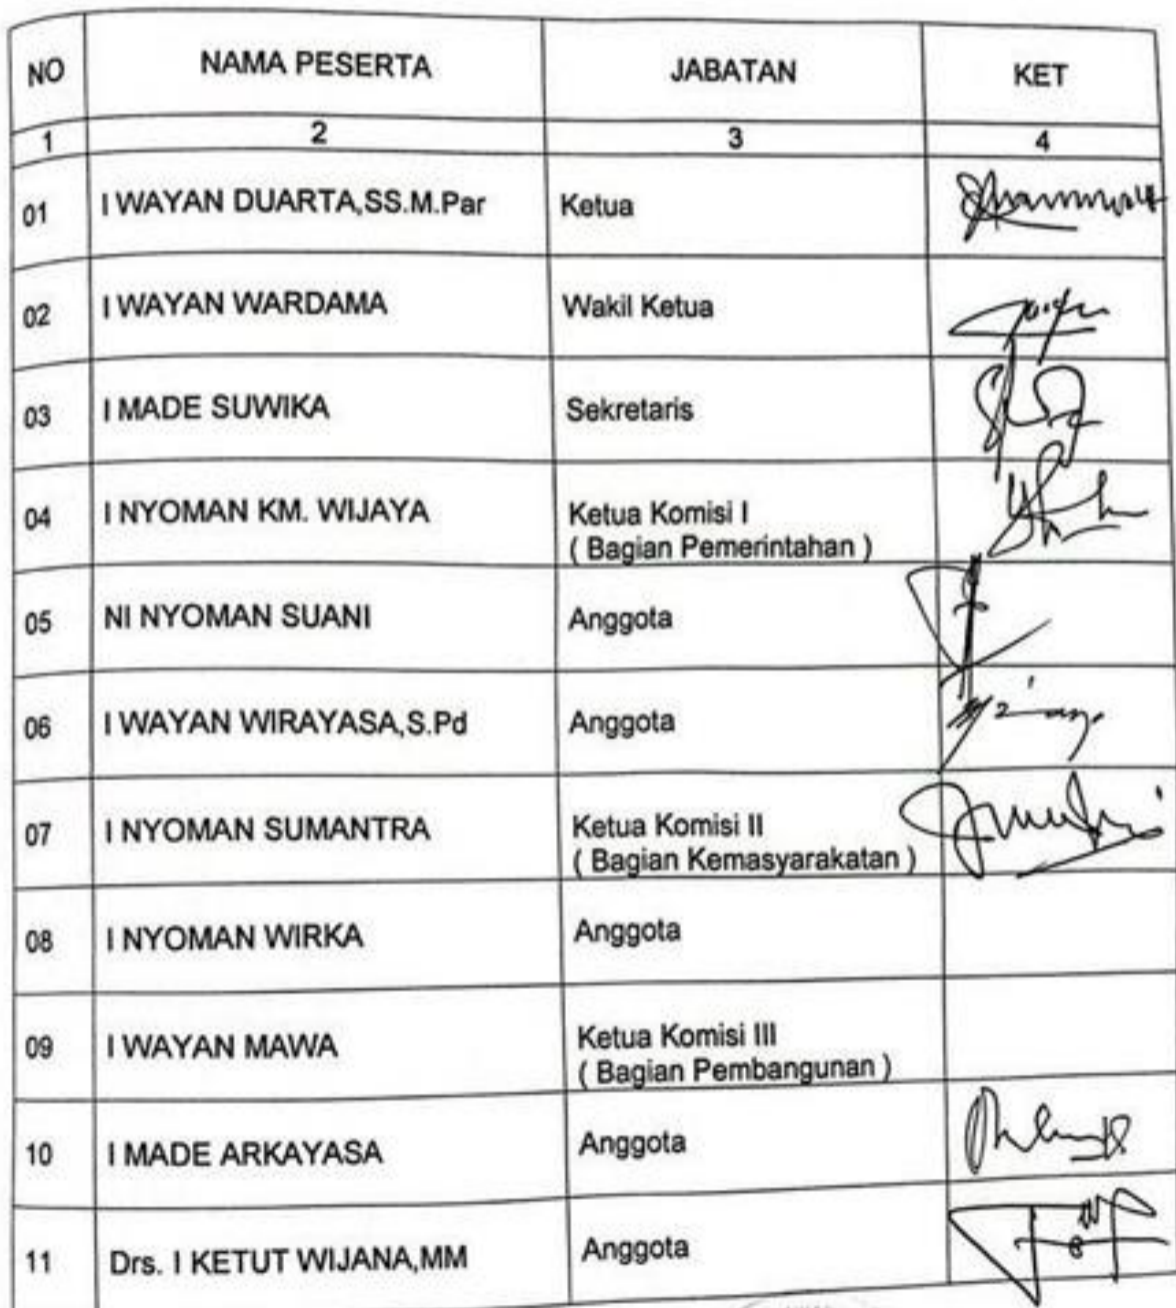 NO NAMA PESERTA JABATAN KET
1 2 3 4
01 I WAYAN DUARTA,SS.M.Par Ketua
02 I WAYAN WARDAMA Wakil Ketua
03 I MADE SUWIKA Sekretaris
04 I NYOMAN KM. WIJAYA Ketua Komisi I
( Bagian Pemerintahan )
05 NI NYOMAN SUANI Anggota
06 I WAYAN WIRAYASA,S.Pd Anggota
07 I NYOMAN SUMANTRA Ketua Komisi II
( Bagian Kemasyarakatan )
08 I NYOMAN WIRKA Anggota
09 I WAYAN MAWA Ketua Komisi III
( Bagian Pembangunan )
10 I MADE ARKAYASA Anggota
11 Drs. I KETUT WIJANA,MM Anggota